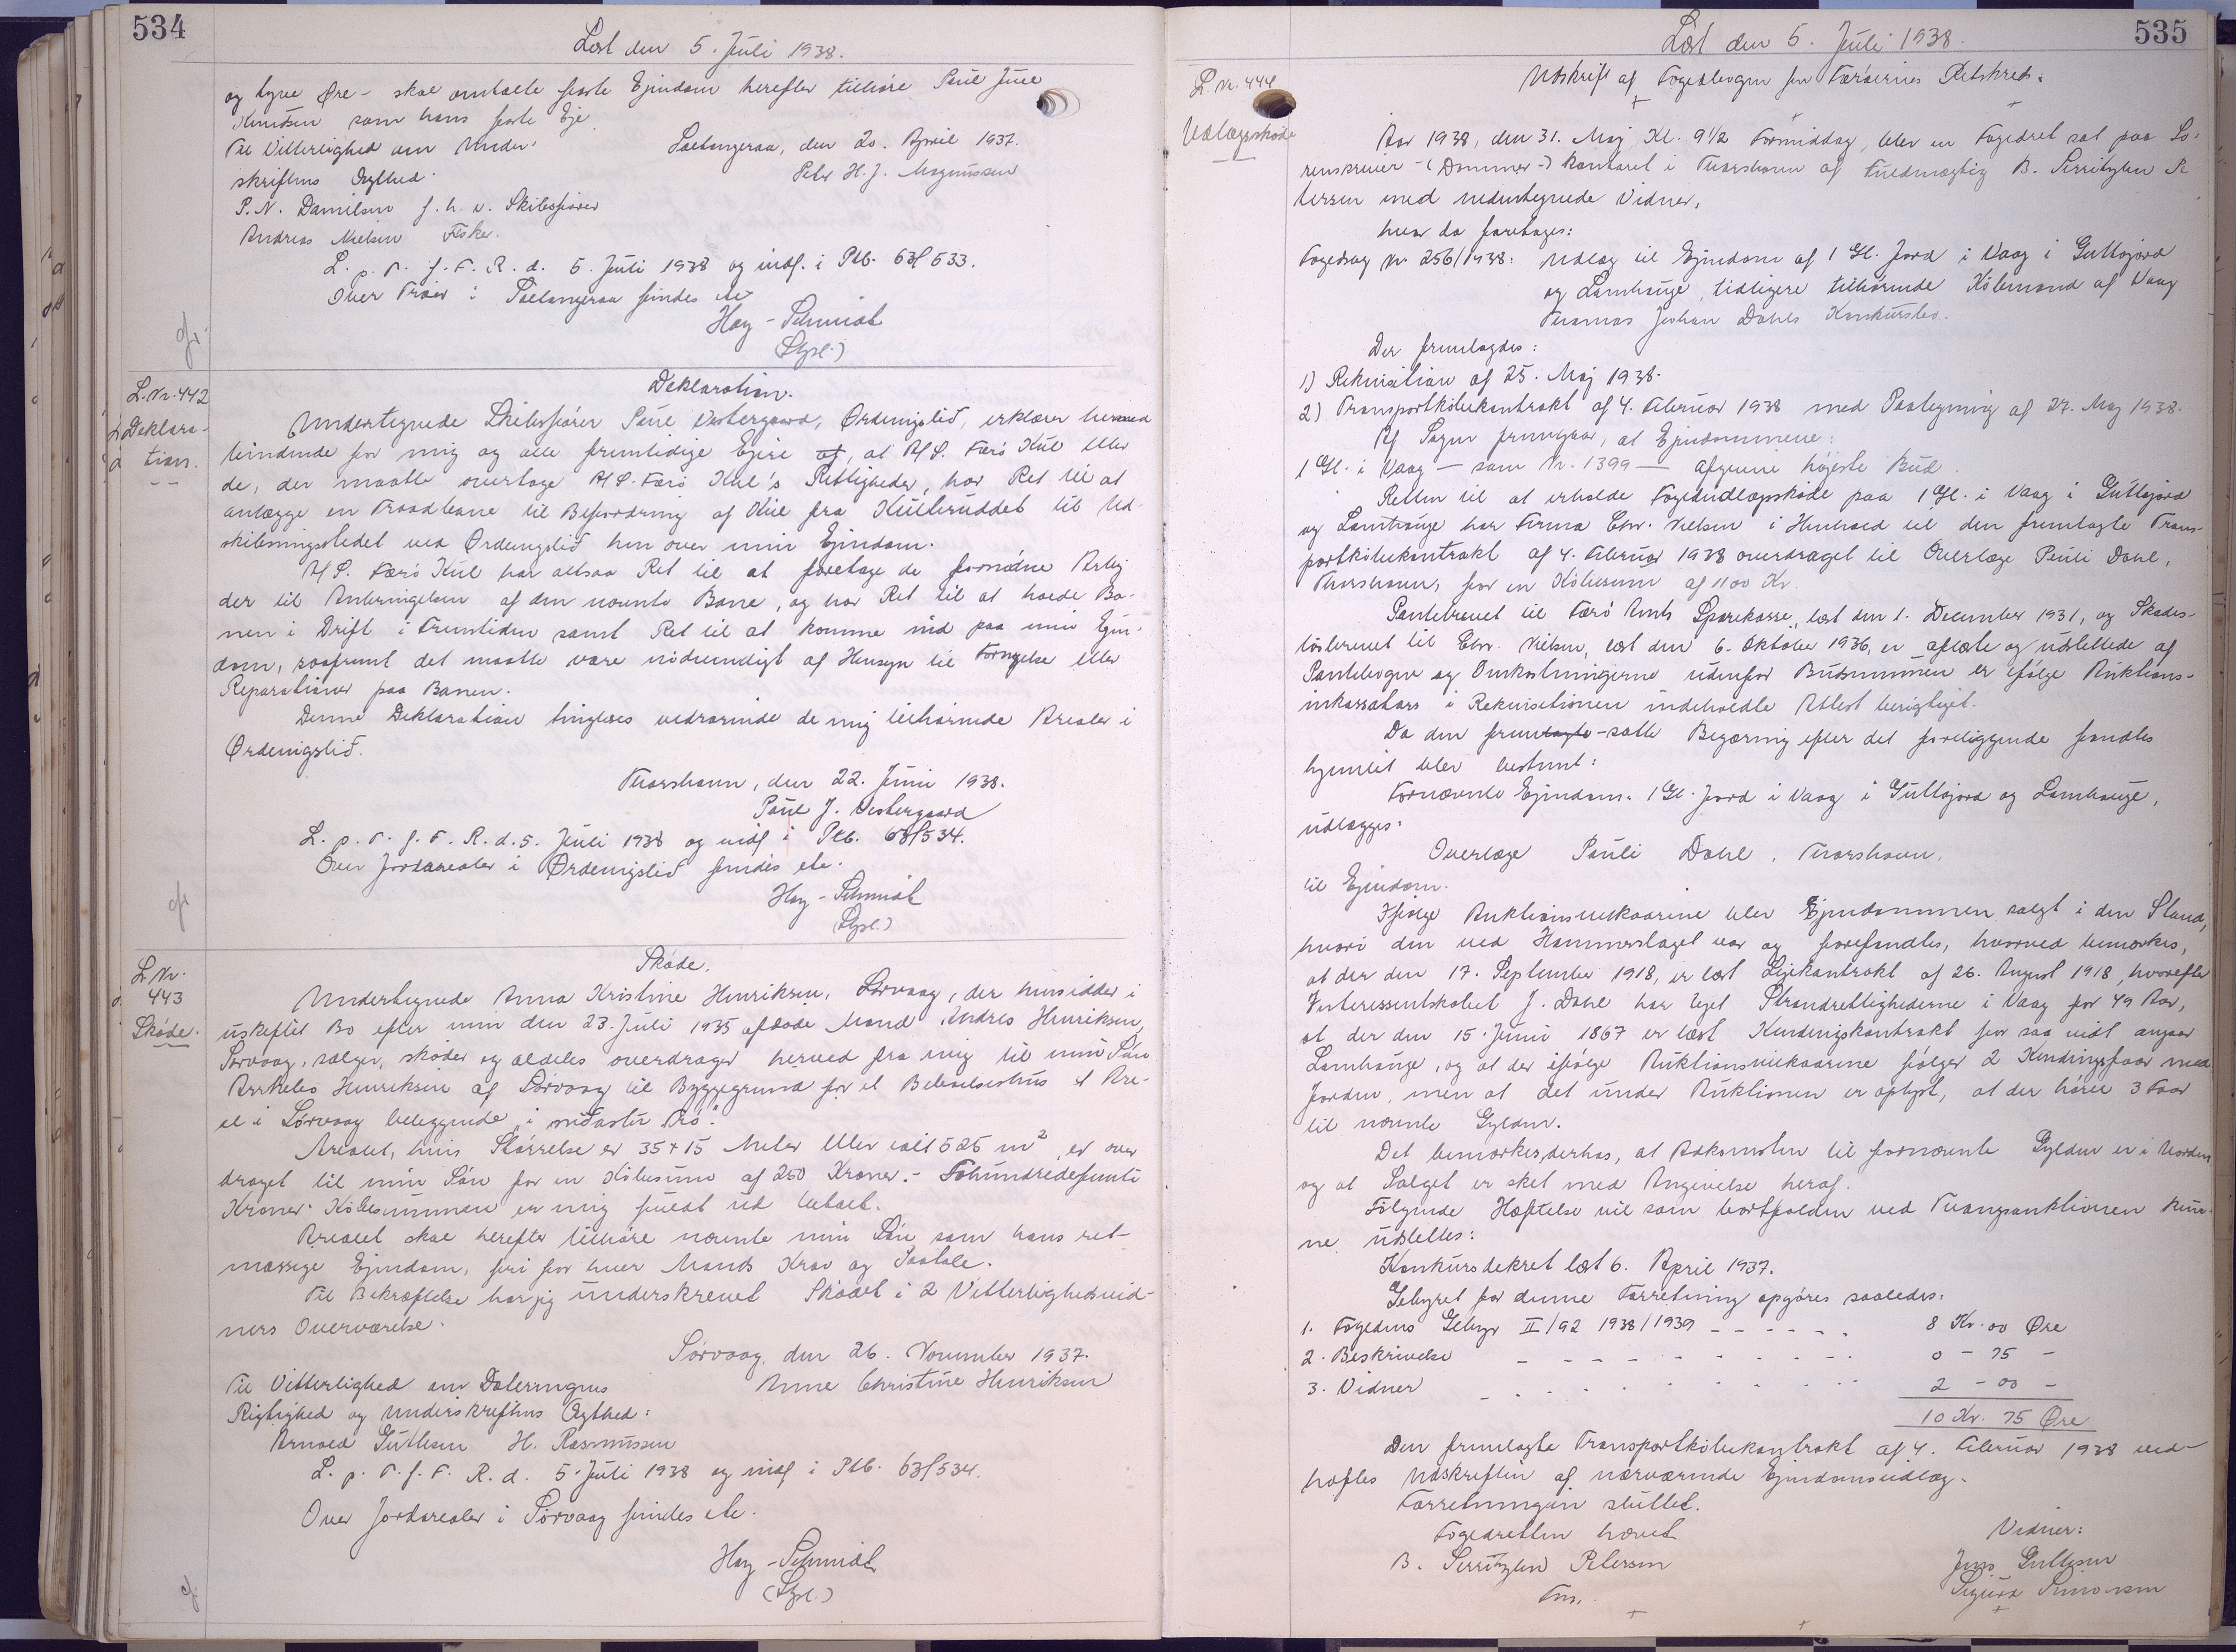 534
Læst den 5. Juli 1938.
og tyve Øre - skal omtalte faste Ejendom herefter tilhøre Poul Juul
Knudsen som hans faste Eje
Til Vitterlighed om Under-
skriftens Ægthed.
Saltangeraa, den 20. April 1937.
Peter H. J. Magnussen
P. N. Danielsen f. h. v. Skibsfører
Andreas Nielsen Fisker.
L. p. T. f. F. R. d. 5. Juli 1938 og indf. i Ptb. 63/533.
Over Trøer i Saltangeraa findes etc
Hay-Schmidt
(Stpl.)
L.Nr. 442
Deklara-
tion.
Deklaration.
Undertegnede Skibsfører Poul Vestergaard, Ørdavigslid, erklærer herved
bindende for mig og alle fremtidige Ejere af, at A/S. Færø Kul eller
de, der maatte overtage A/S. Færø Kul's Rettigheder, har Ret til at
anlægge en Traadbane til Befordring af Kul fra Kulbruddet til Ud-
skibningsstedet ved Ørdavigslid hen over min Ejendom.
A/S. Færø Kul har altsaa Ret til at foretage de fornødne Arbej
der til Anbringelsen af den nævnte Bane, og har Ret til at holde Ba-
nen i Drift i Fremtiden samt Ret til at komme ind paa min Ejen-
dom, saafremt det maatte være nødvendigt af Hensyn til Fornyelse eller
Reparationer paa Banen.
Denne Deklaration tinglæses vedrørende de mig tilhørende Arealer i
Ørdavigslid.
Thorshavn, den 22. Juni 1938.
Poul J. Vestergaard
L. p. T. f. F. R. d. 5. Juli 1938 og indf i Ptb. 63/534.
Over Jordarealer i Ørdavigslid findes etc.
Hay-Schmidt
(Stpl.)
L.Nr.
443
Skøde.
Skøde.
Undertegnede Anna Kristine Henriksen, Sørvaag, der hensidder i
uskiftet Bo efter min den 23. Juli 1935 afdøde Mand Andreas Henriksen,
Sørvaag, sælger, skøder og aldeles overdrager herved fra mig til min Søn
Henriksen af Sørvaag til Byggegrund for et Beboelseshus et Are-
al i Sørvaag beliggende
Arealet, hvis Størrelse er 35 + 15 Meter eller ialt 525 m², er over
draget til min Søn for en Købesum af 250 Kroner. - Tohundredefemti
Kroner. Købesummen er mig fuldt ud betalt.
Arealet skal herefter tilhøre nævnte min Søn som hans ret-
mæssige Ejendom, fri for hver Mands Krav og Paatale.
Til Bekræftelse har jeg underskrevet Skødet i 2 Vitterlighedsvid-
ners Overværelse.
Sørvaag, den 26. November 1937.
Anne Christine Henriksen
Til Vitterlighed om Dateringens
Rigtighed og Underskriftens Ægthed:
Arnold Guttesen H. Rasmussen
L. p. T. f. F. R. d. 5. Juli 1938 og indf i Ptb. 63/534.
Over Jordarealer i Sørvaag findes etc.
Hay-Schmidt
(Stpl.)
535
Læst den 6. Juli 1938.
L. Nr. 444
Udlægsskøde
Udskrift af Fogedbogen for Færøernes Retskreds.
Aar 1938, den 31. Maj Kl. 9½ Formiddag, blev en Fogedret sat paa So-
renskriver- (Dommer-) Kontoret i Thorshavn af Fuldmægtig B. Serritzlew Pe-
tersen med undertegnede Vidner,
hvor da foretages:
Fogedsag Nr. 256/1938: Udlæg til Ejendom af 1 Gl. Jord i Vaag i Guttagjord
og Lambhauge, tidligere tilhørende Købmand af Vaag
Thomas Johan Dahls Konkursbo.
Der fremlagdes:
1) Rekvisition af 25. Maj 1938.
2) Transportkøbekontrakt af 4. Februar 1938 med Paategning af 27. Maj 1938.
Af Sagen fremgaar, at Ejendommene:
1 Gl. i Vaag - som Nr. 1399 - afgivne højeste Bud.
Retten til at erholde Fogedudlægsskøde paa 1 Gl. i Vaag i Guttagjord
og Lambhauge har Firma Chr. Nielsen i Henhold til den fremlagte Trans-
portkøbekontrakt af 4. Februar 1938 overdraget til Overlæge Pauli Dahl,
Thorshavn, for en Købesum af 1100 Kr.
Pantebrevet til Færø Amts Sparekasse, læst den 1. December 1931, og Skades-
løsbrevet til Chr. Nielsen, læst den 6. Oktober 1936, er aflæste og udslettede af
Pantebogen og Omkostningerne udenfor Budsummen er ifølge Auktions-
inkassators i Rekvisitionen indeholdte Attest berigtiget.
Da den fremlagte-satte Begæring efter det foreliggende fandtes
hjemlet blev bestemt:
Fornævnte Ejendom: 1 Gl. Jord i Vaag i Guttagjord og Lambhauge,
udlægges:
Overlæge Pauli Dahl, Thorshavn,
til Ejendom.
Ifølge Auktionsvilkaarene blev Ejendommen solgt i den Stand,
hvori den ved Hammerslaget var og forefandtes, hvorved bemærkes,
at der den 17. September 1918, er læst Lejekontrakt af 26. August 1918, hvorefter
Interessentskabet J. Dahl har lejet Strandrettighederne i Vaag for 49 Aar,
at der den 15. Juni 1867 er læst Kendingskontrakt for saa vidt angaar
Lambhauge, og at der ifølge Auktionsvilkaarene følger 2 Kendingsfaar med
Jorden, men at det under Auktionen er oplyst, at der hører 3 Faar
til nævnte Gylden.
Det bemærkes derhos, at Adkomsten til fornævnte Gylden er i Uorden,
og at Salget er sket med Angivelse heraf.
Følgende Hæftelse vil som bortfalden ved Tvangsauktionen kun-
ne udslettes:
Konkursdekret læst 6. April 1937.
Gebyret for denne Forretning opgøres saaledes:
1. Fogedens Gebyr II/92 1938/1939 - - - - - - 8 Kr. 00 Øre
2. Beskrivelse - - - - - - - - - 0 - 75 -
3. Vidner - - - - - - - - - 2 - 00 -
10 Kr. 75 Øre
Den fremlagte Transportkøbekontrakt af 4. Februar 1938 ved-
hæftes Udskriften af nærværende Ejendomsudlæg.
Forretningen sluttet.
Fogedretten hævet
B. Serritzlew Petersen
Fm.
Vidner:
Jens Guttesen
Sigurd Simonsen